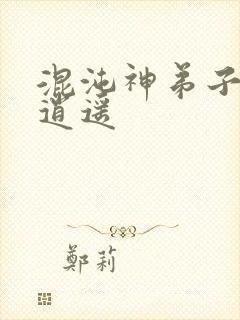 混沌神弟子
逍遥
鄭莉